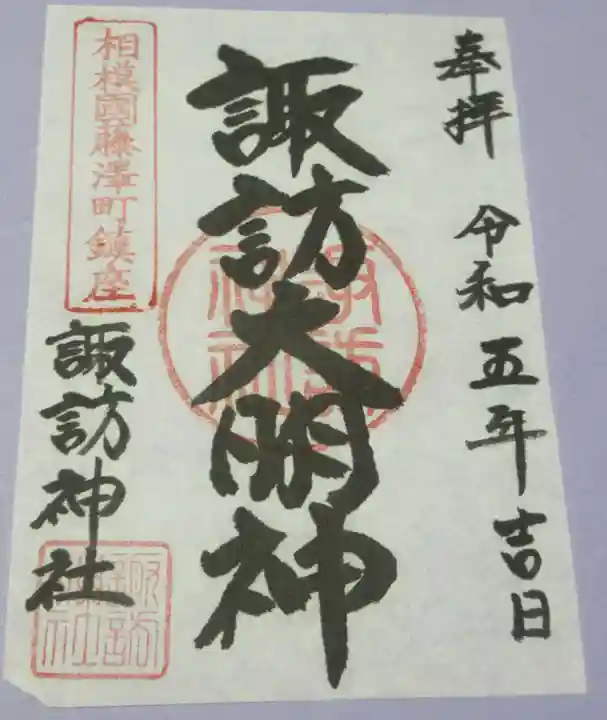 奉拝　令和五年吉日
諏訪大明神
相模國藤澤町鎮座
諏訪神社
諏訪神社